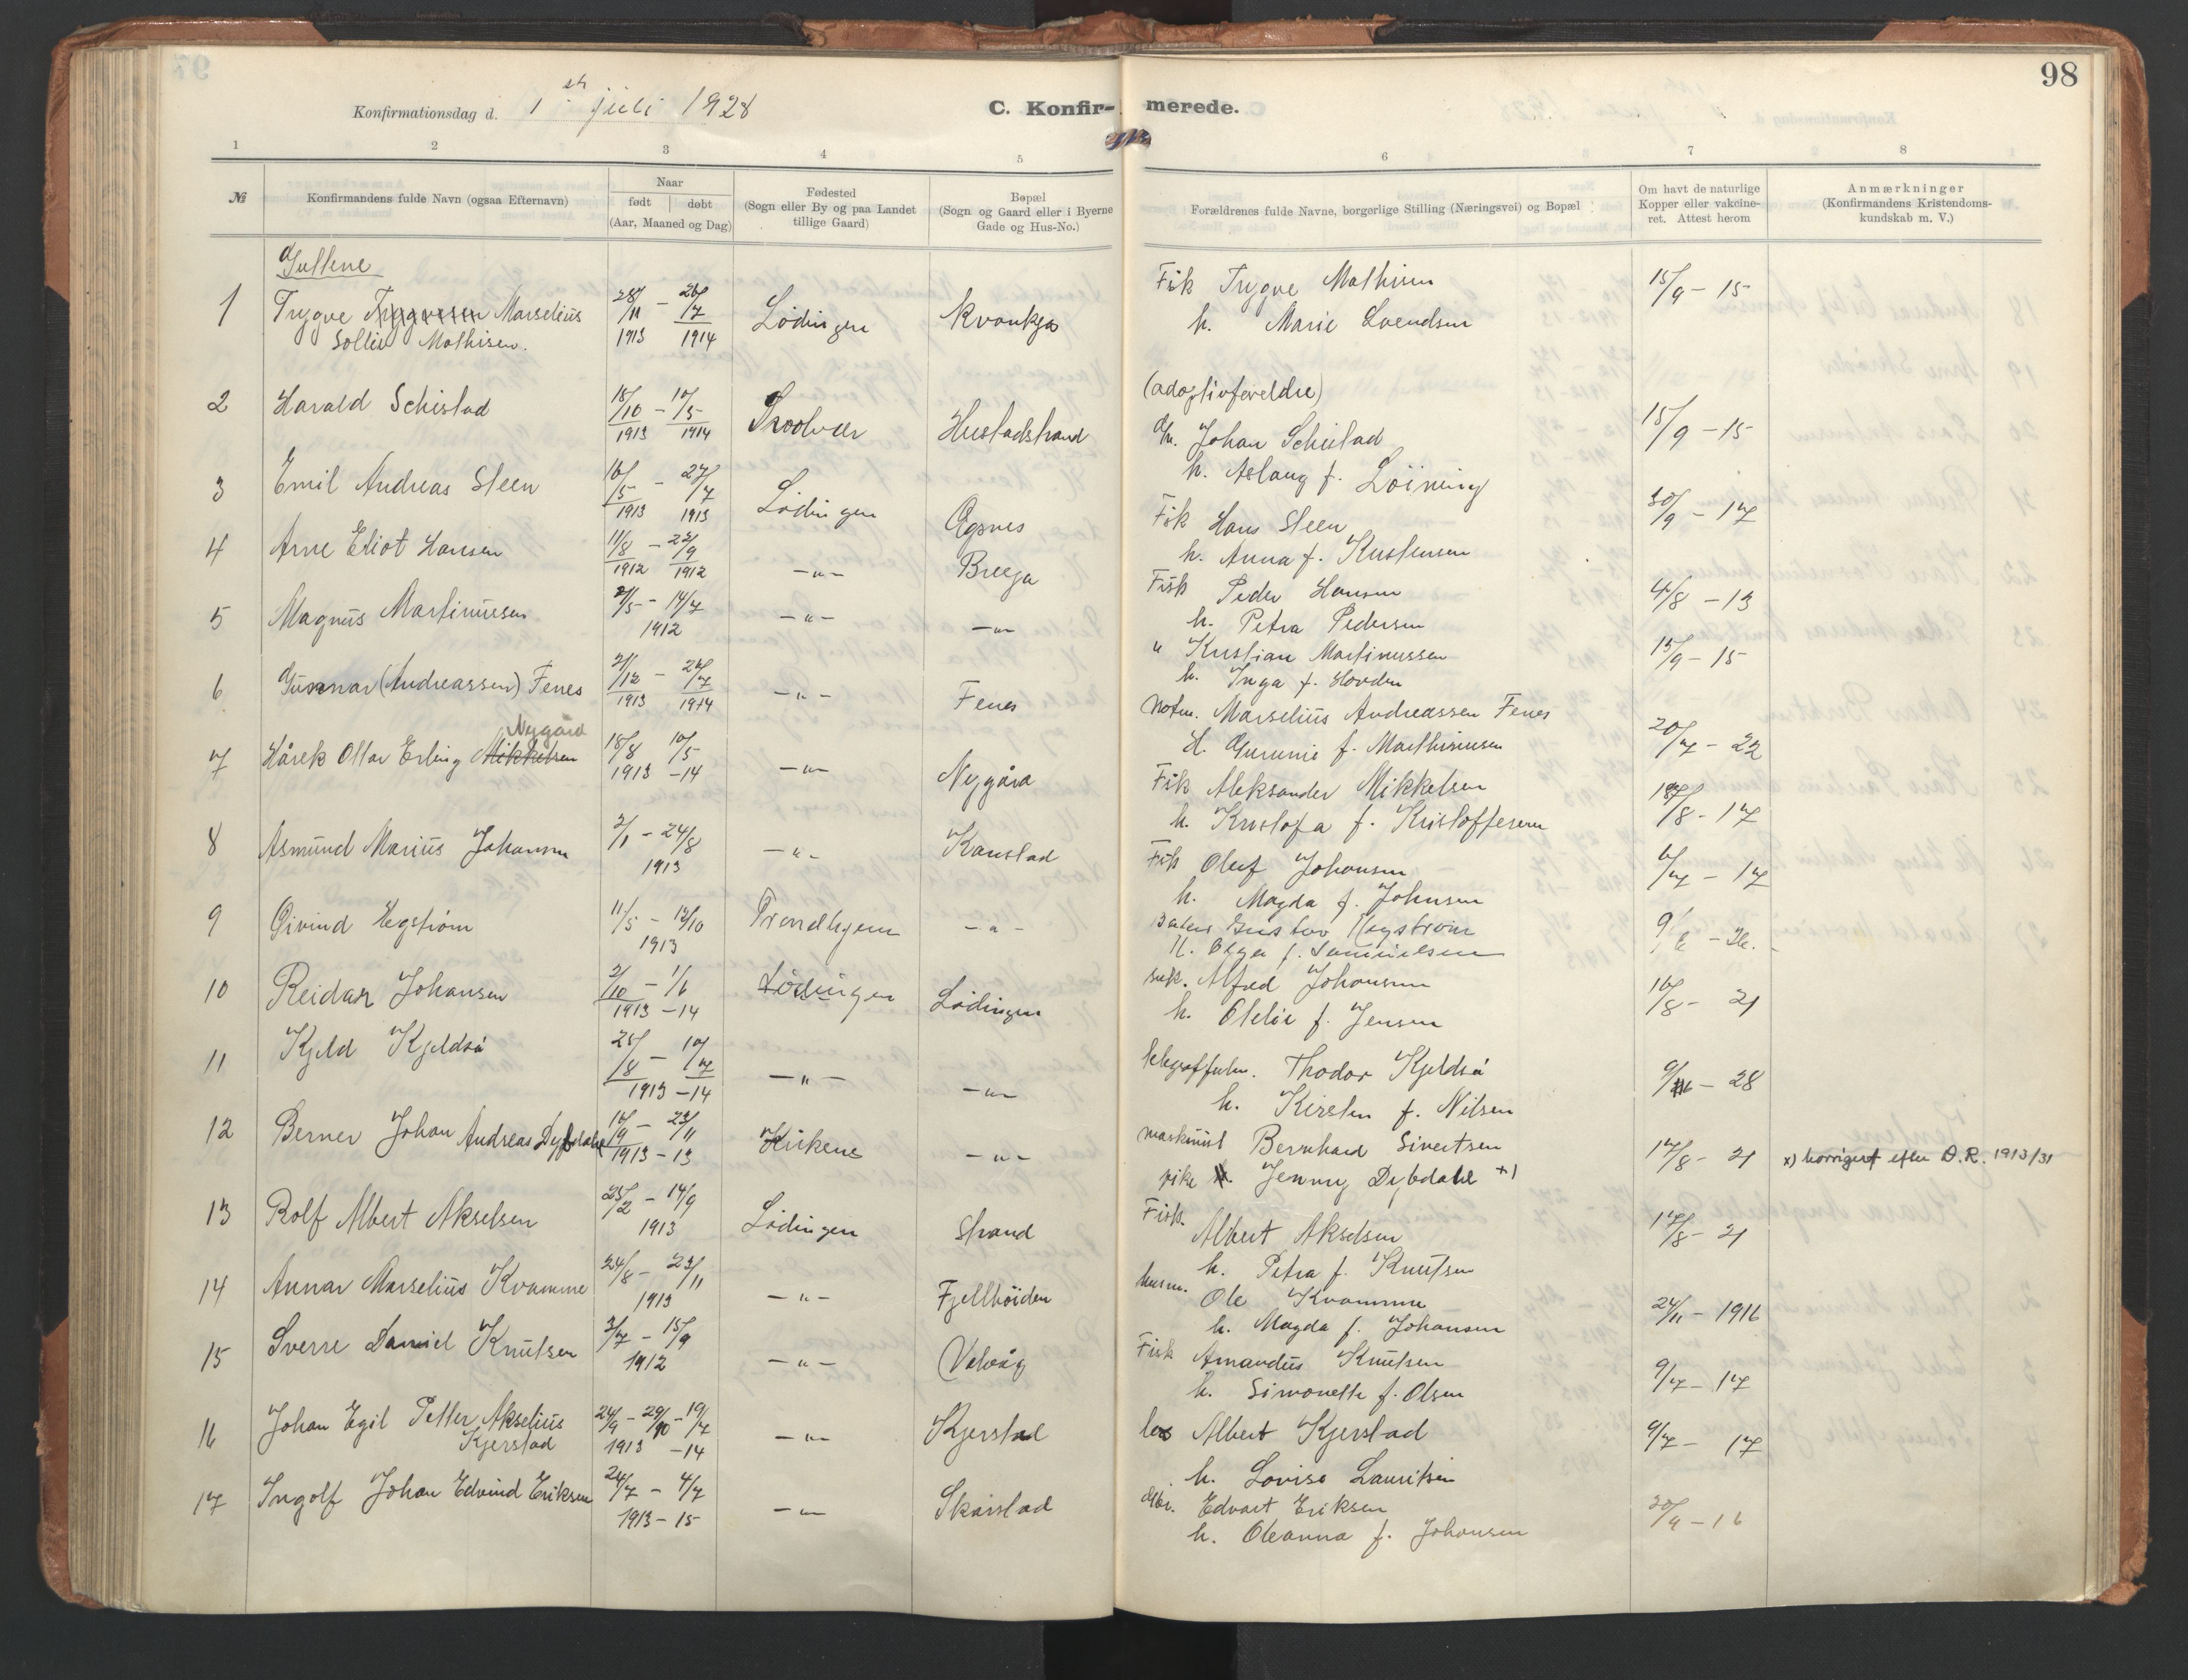 98
Konfirmationsdag d. 1 juli 1928
C. Konfir- merede.
1 2 3 4 5 6 7 8
№
Konfirmandens fulde Navn (ogsaa Efternavn)
Naar
født døbt
(Aar, Maaned og Dag)
Fødested
(Sogn eller By og paa Landet
tillige Gaard)
Bopæl
(Sogn og Gaard eller i Byerne
Gade og Hus-No.)
Forældrenes fulde Navne, borgerlige Stilling (Næringsvei) og Bopæl
Om havt de naturlige
Kopper eller vakcine-
ret. Attest herom
Anmærkninger
(Konfirmandens Kristendoms-
kundskab m. V.)
Guttene
1 Trygve Marselius 28/11 – 26/7 Lødingen Fisk Trygve Mathisen 15/9 – 15
Sollie Mathisen. 1913 1914 h. Marie
2 Harald Schistad 15/10 – 10/5 Hustadstrand (adoptivforeldre) 15/9 – 15
1913 1914 Johan Schistad
h. Aslaug f.
3 Emil Andreas Steen 16/5 – 27/7 Lødingen Agsnes Fisk Hans Steen 30/9 – 17
1913 1913 h. Anna f. Kristensen
4 Arne Eliot Hansen 11/8 – 22/9 – " – Fisk Peder Hansen 4/8 – 13
1912 1912 h. Petra Pedersen
5 Magnus Martinussen 2/5 – 14/7 – " – – " – " Kristian Martinussen 15/9 – 15
1912 h. Inga f. Hovden
6 Gunnar (Andreassen) Fenes 2/12 – 26/7 – " – Fenes Marselius Andreassen Fenes 20/7 – 22
1913 1914 H. f. Mathisen
Nygård
7 Hårek Ottar Erling Mikkelsen 18/8 10/5 – " – Nygård Fisk Aleksander Mikkelsen 18/8 – 17
1913 – 14 h. Kristofa f. Kristoffersen
8 Asmund Marius Johansen 2/1 – 24/8 – " – Kanstad Fisk Oluf Johansen 6/7 – 17
1913 h. Magda f. Johnsen
9 Øivind Hegstrøm 11/5 – 12/10 Trondhjem – " – Gustav Hegstrøm
1913 H. Olga f. Samuelsen
10 Reidar Johansen 2/10 – 1/6 Lødingen Lødingen Alfred Johansen 16/8 – 21
1913 – 14 h. f. Jensen
11 Kjeld Kjeldså 25/8 – 10/7 – " – – " – Thodor Kjeldså 9/6 – 28
1913 – 14 h. Kirsten f. Nilsen
12 Berner Johan Andreas Dybdahl 16/9 – 23/11 Kirkenes – " – maskinist Bernhard Sivertsen 17/8 – 21 x) korrigert efter D.R. 1913/31
1913 – 13 pike Jenny Dybdahl x)
13 Rolf Albert Akselsen 25/2 – 14/9 Lødingen Strand Fisk. Albert Akselsen 17/8 – 21
1913 h. Petra f. Knutsen
14 Annar Marselius Kvamme 24/8 – 23/11 – " – Fjellhøiden husm. Ole Kvamme 24/11 – 1916
1913 h. Magda f. Johansen
15 Sverre Daniel Knutsen 3/7 – 15/9 – " – Fisk Amandus Knutsen 9/7 – 17
1912 h. Simonette f. Olsen
16 Johan Egil Petter Akselius 24/9 – 29/10 – 19/7 – " – Kjerstad Albert Kjerstad 9/7 – 17
Kjerstad 1913 – 14 h. Lovise Lauritsen
17 Ingolf Johan Edvind Eriksen 24/7 – 4/7 – " – Skårstad Edvart Eriksen 20/9 – 16
1913 – 15 h. Oleanna f. Johansen